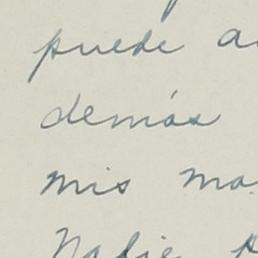 puede
demás
mis
Nadie